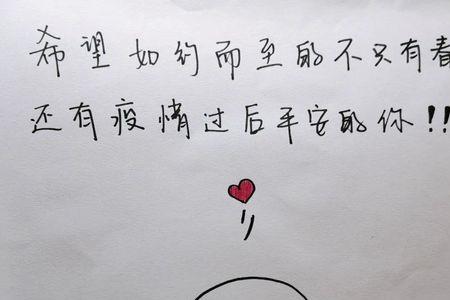 希望如约而至的不只有春
还有疫情过后平安的你!!